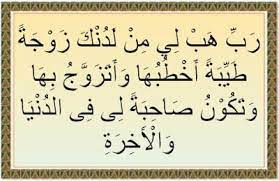 رَبِّ هَبْ لِي مِنْ لَدُنْكَ زَوْجَةً
طَيِّبَةً أَخْطُبُهَا وَأَتَزَوَّجُ بِهَا
وَتَكُوْنُ صَاحِبَةً لِى فِى الدُّنْيَا
وَالْأَخِرَةِ